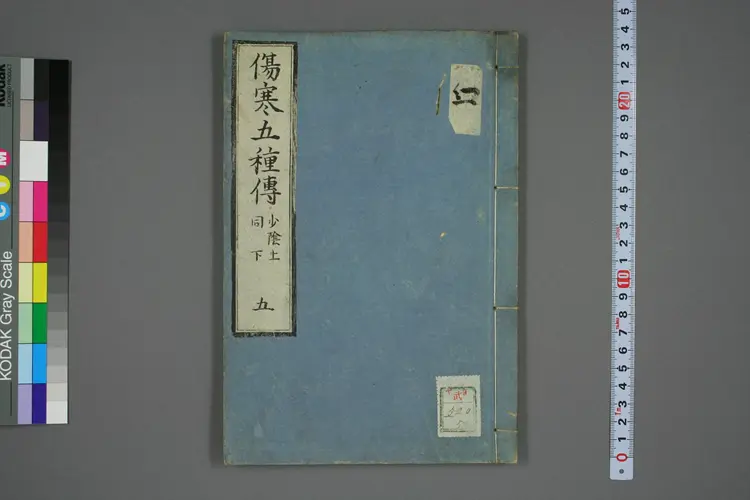 傷寒五種傳
少陰上
同 下
五
仁
武
220
5
KODAK Gray Scale
KODAK
C
Y
M
0 1 2 3 4 5 6 7 8 9 10 1 2 3 4 5 6 7 8 9 20 1 2 3 4 5